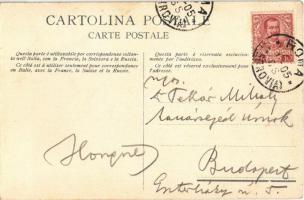 CARTOLINA POSTALE
CARTE POSTALE
Questa parte è utilizzabile per corrispondenze soltanto nell'Italia, con la Francia, la Svizzera e la Russia.
Ce côté est à utiliser seulement pour correspondances en Italie, avec la France, la Suisse et la Russie.
Questa parte è riservata esclusivamente per l'indirizzo.
Ce côté est réservé exclusivement pour l'adresse.
ROMA
05
(FERROVIA)
Mihály
Hongrie
Budapest
Eszterházy u. 5.